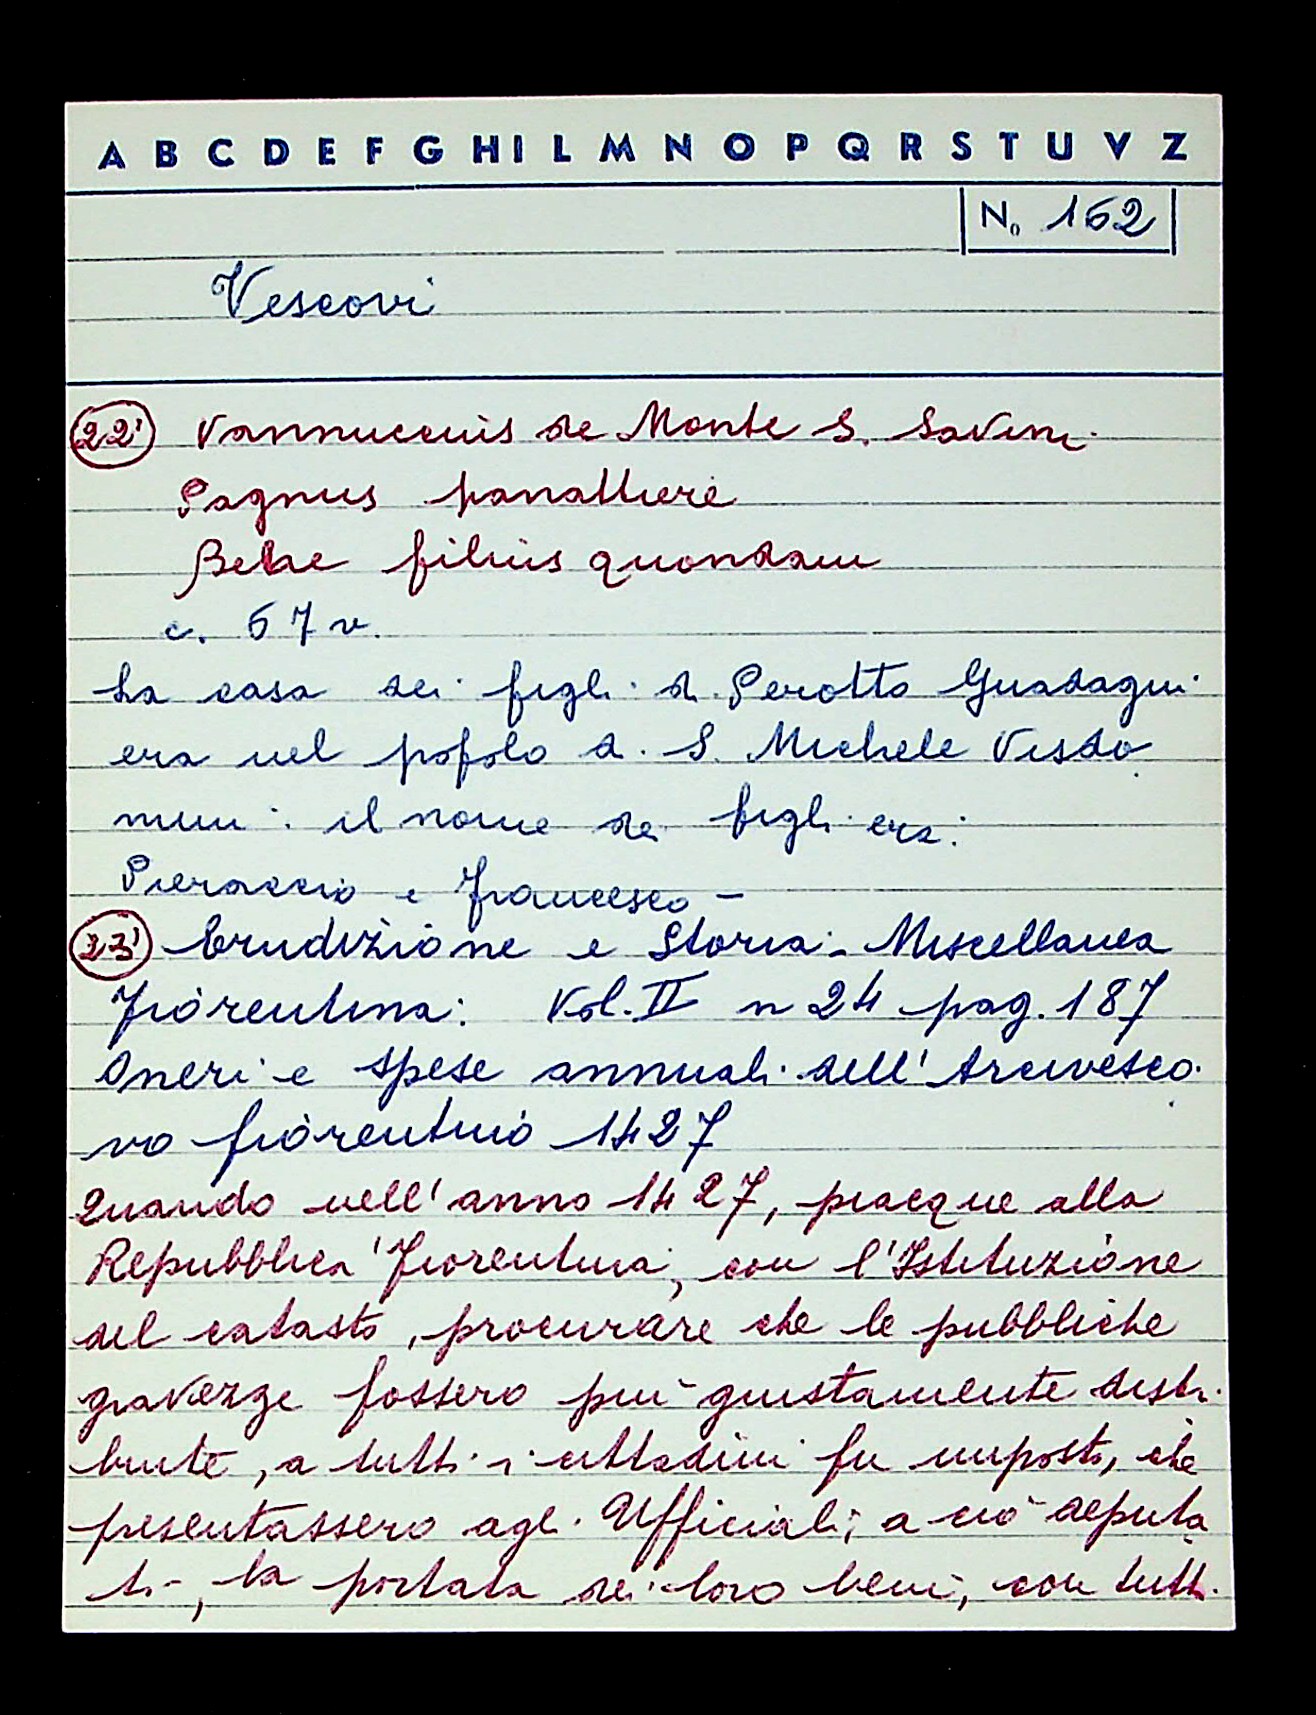 A B C D E F G H I L M N O P Q R S T U V Z
No 162
Vescovi
22) Vannuccius de Monte S. Savini
Pagnus panattiere
Betae filius quondam
c. 67 v.
la casa dei figli di Perotto Guadagni
era nel popolo di S. Michele Visdo
mini: il nome dei figli era:
Pieraccio e Francesco -
23) Erudizione e Storia - Miscellanea
Fiorentina: Vol. II n 24 pag. 187
Oneri e spese annuali dell'Arcivesco
vo fiorentino 1427
Quando nell'anno 1427, piacque alla
Repubblica Fiorentina, con l'Istituzione
del catasto, procurare che le pubbliche
gravezze fossero più giustamente distri
buite, a tutti i cittadini fu imposto, che
presentassero agli Ufficiali, a ciò deputa
ti -, la portata dei loro beni, con tutti